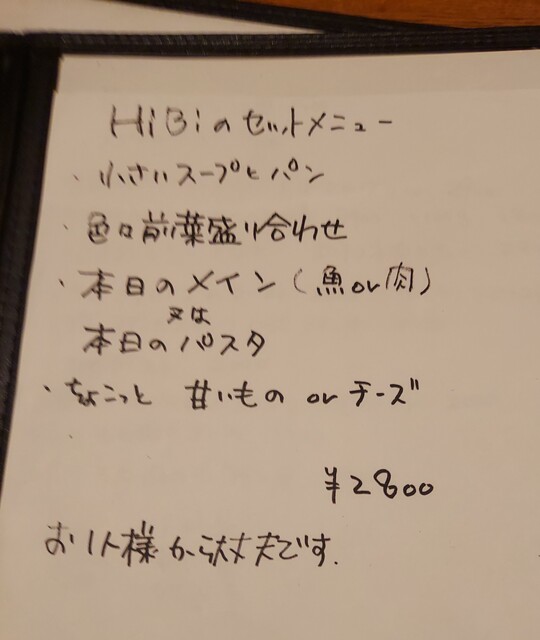 HiBiのセットメニュー
・小さいスープとパン
・色々前菜盛り合わせ
・本日のメイン(魚or肉)
又は
本日のパスタ
・ちょこっと 甘いもの orチーズ
¥2800
お1人様から大丈夫です.